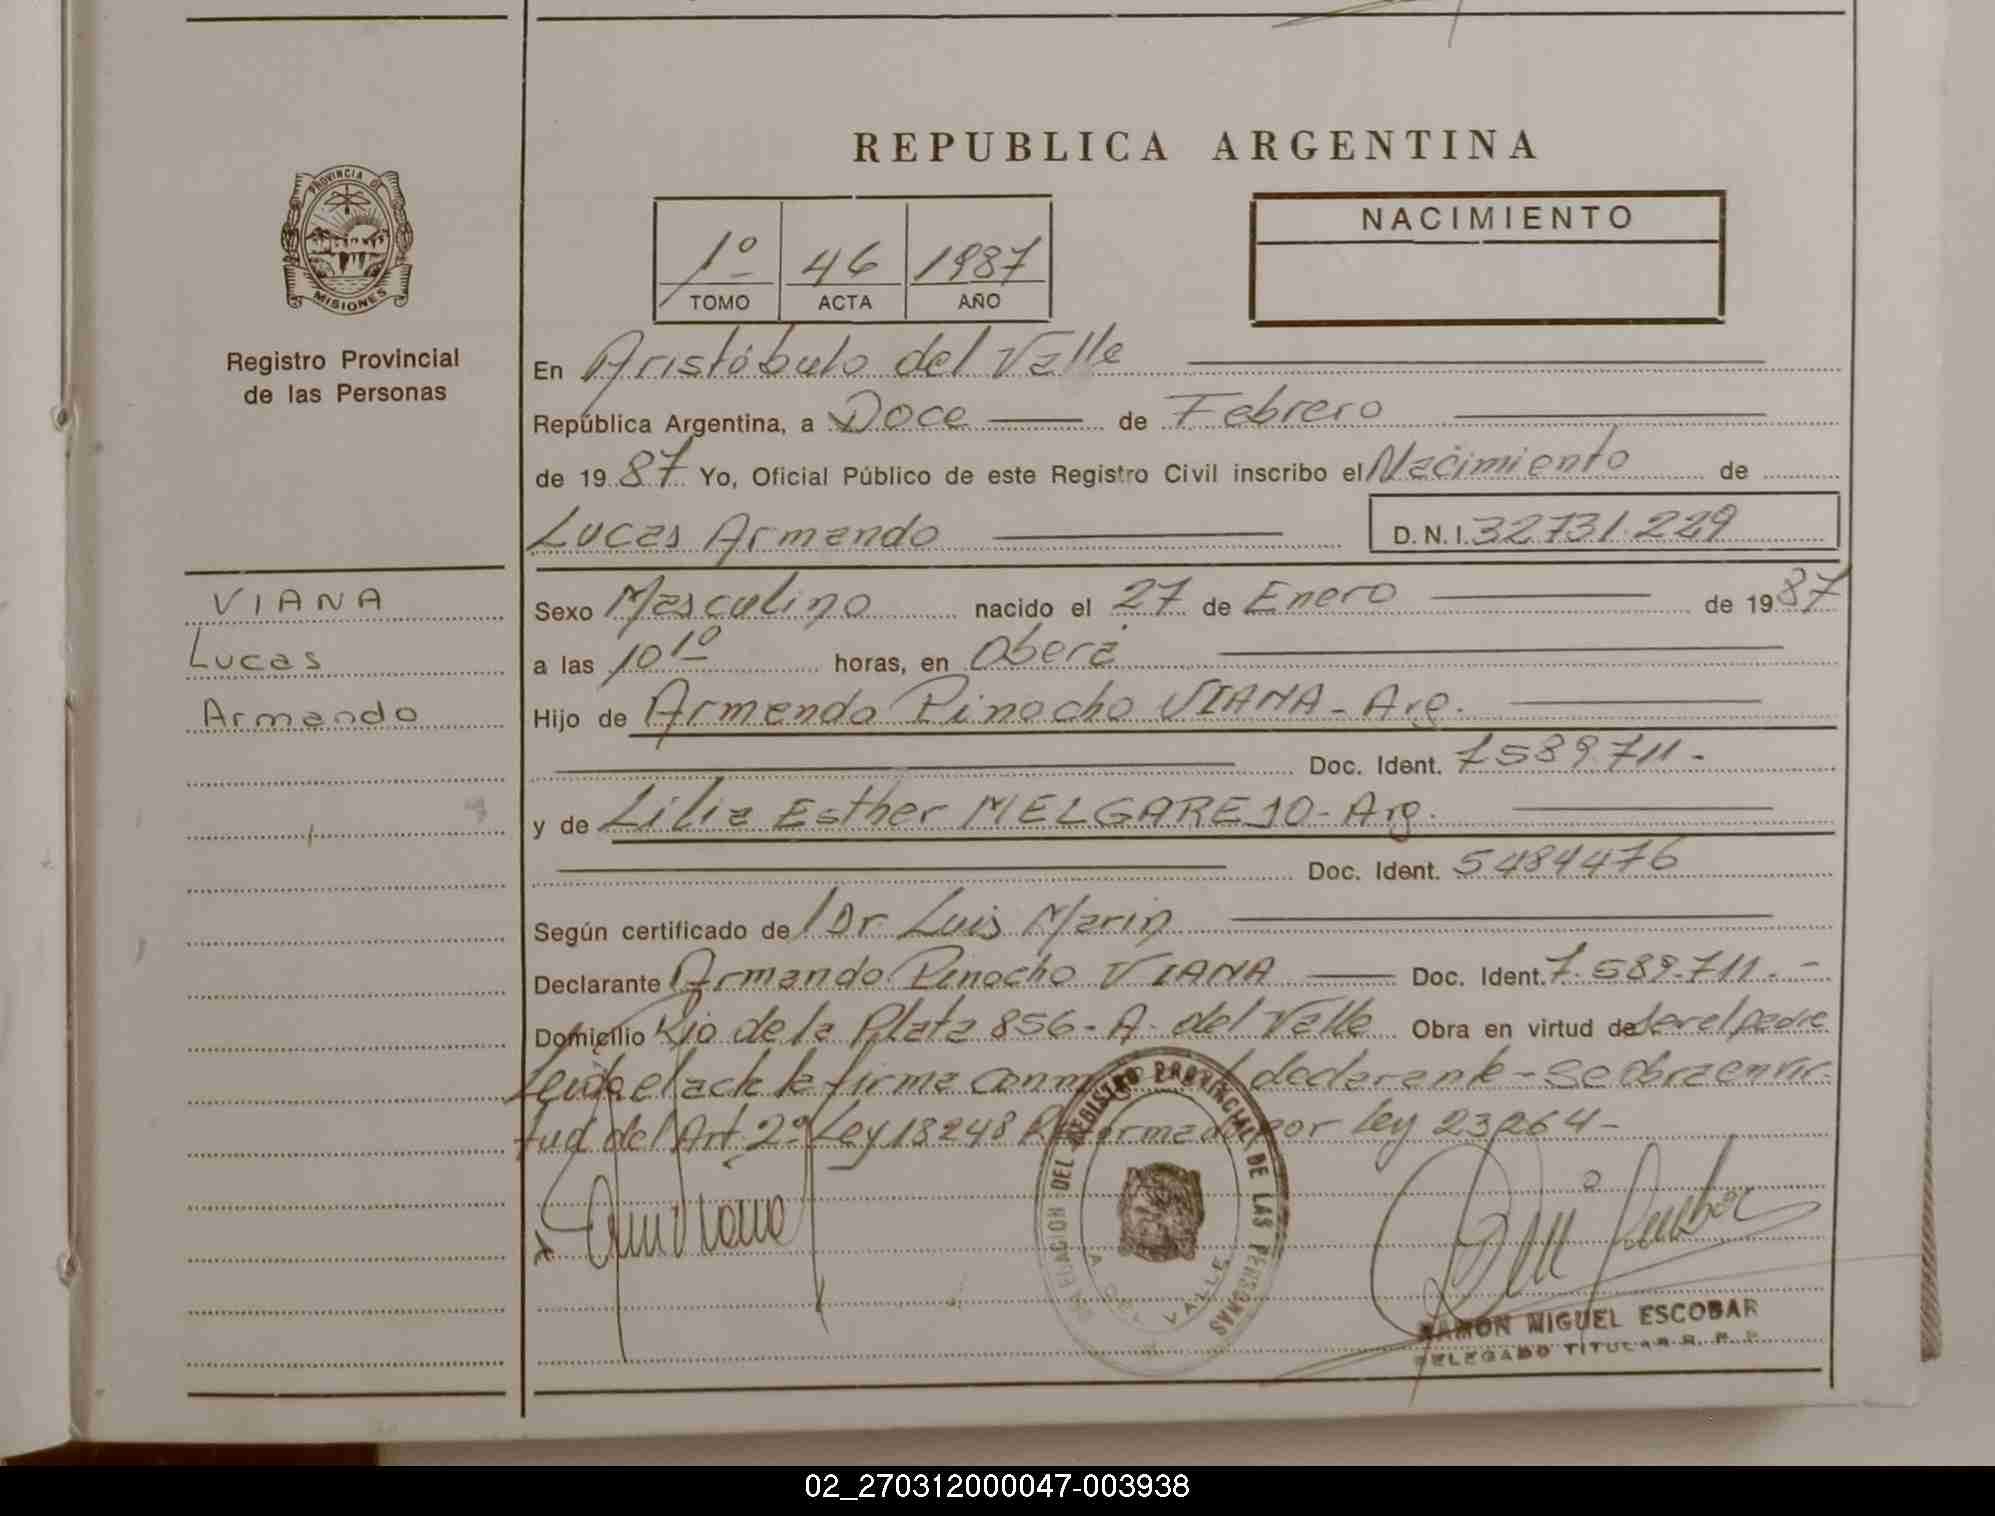 REPUBLICA ARGENTINA
PROVINCIA DE
MISIONES
Registro Provincial
de las Personas
1º 46 1987
TOMO ACTA AÑO
NACIMIENTO
En Aristóbulo del Valle
República Argentina, a Doce de Febrero
de 1987 Yo, Oficial Público de este Registro Civil inscribo el Nacimiento de
Lucas Armando D.N.I. 32731.229
VIANA
Lucas
Armando
Sexo Masculino nacido el 27 de Enero de 1987
a las 10 1º horas, en Oberá
Hijo de Armando Pinocho VIANA - Arg.
Doc. Ident. 7589711-
y de Lilia Esther MELGAREJO - Arg.
Doc. Ident. 5484476
Según certificado de Dr. Luis Marin
Declarante Armando Pinocho VIANA Doc. Ident. 7.589.711.-
Domicilio Rio de la Plata 856 - A. del Valle Obra en virtud de ser el padre
Leida el acta la firma declarante - Se obra en vir-
tud del Art 2º Ley 18248 Reformada por Ley 23264-
DEL REGISTRO PROVINCIAL DE LAS PERSONAS
A. DEL VALLE
RAMON MIGUEL ESCOBAR
DELEGADO TITULAR R. P. P.
02_270312000047-003938